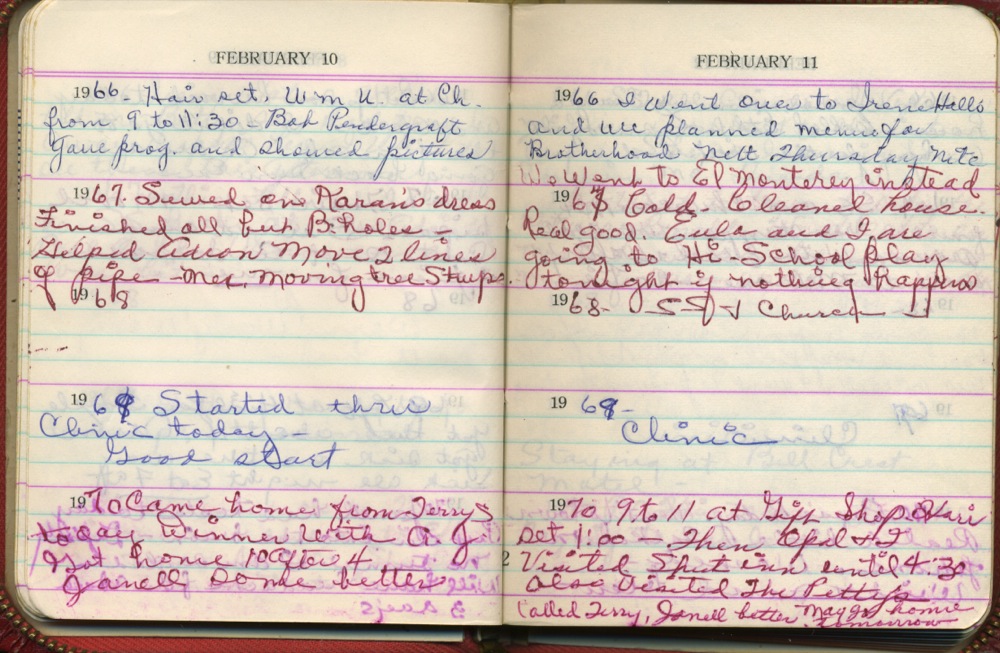 FEBRUARY 10
1966 - Hair set. W m U. at Ch.
from 9 to 11:30 - Bob Pendergraft
gave prog. and showed pictures
1967. Sewed on Karan's dress
Finished all but B. holes -
Helped Move 2 lines
of pipe - Mex. moving tree Stups.
1968
1969 Started thru
Clinic today -
Good start
1970 Came home from Terrys
today Winner With A
Got home 10 after 4
Janell some better
FEBRUARY 11
1966 I went over to Irene Hills
and we planned menu for
Brotherhood Nett Thursday Nite
We Went to El Monterey instead
1967 Cold - Cleaned house.
Real good. Eula and I are
going to Hi-School play
tonight if nothing happens
1968 - S-S & Church
1969 -
Clinic
Staying at Bell Crest
Motel -
1970 9 to 11 at Gift Shop Hair
set 1:00 - Then Opal & I
Visited Sput inn until 4:30
also visited The Pettys
Called Terry, Janell better. Maggs home
tomorrow